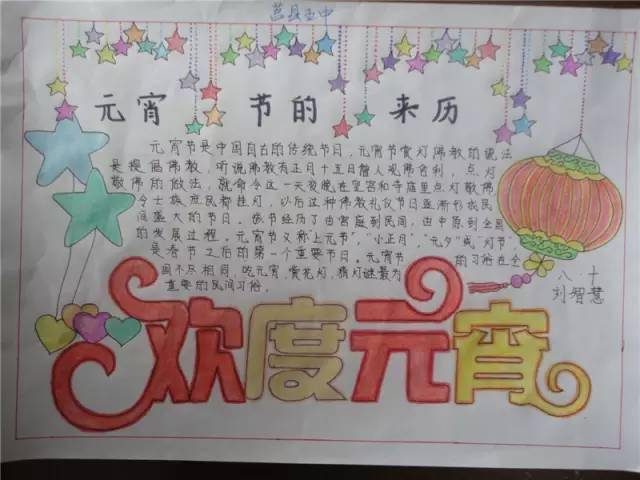 莒县五中
元宵节的来历
元宵节是中国自古的传统节日，元宵节赏灯佛教的说法
是提倡佛教，听说佛教有正月十五日僧人观佛舍利，点灯
敬佛的做法，就命令这一天夜晚在皇宫和寺庙里点灯敬佛
令士族庶民都挂灯，以后这种佛教礼仪节日逐渐形成民
间盛大的节日。该节经历了由宫庭到民间，由中原到全国
的发展过程。元宵节又称"上元节"，"小正月"，"元夕"或"灯节"，
是春节之后的第一个重要节日。元宵节的习俗在全
国不尽相同，吃元宵，赏花灯，猜灯谜最为
重要的民间习俗。
八、十
刘智慧
欢度元宵